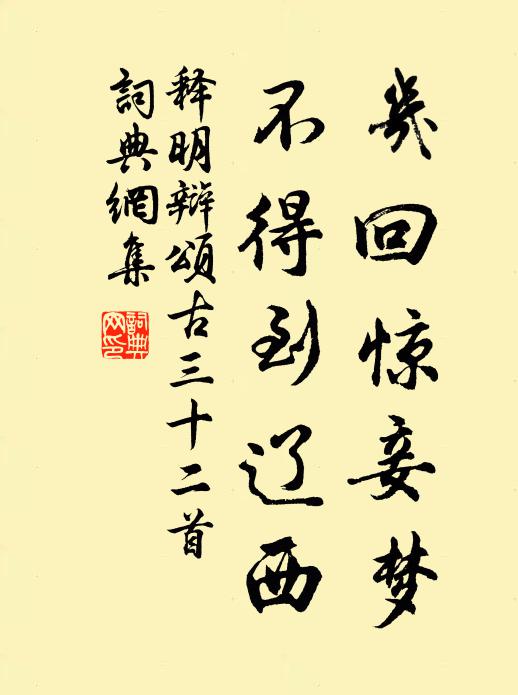 几回惊妾梦
不得到辽西
释明辩颂古三十二首
詞典網集
詞典
网印